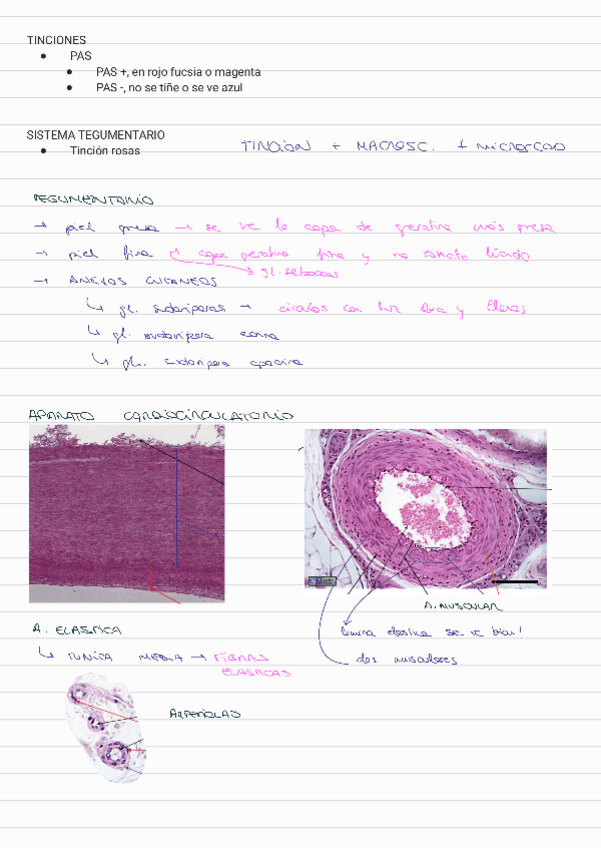 TINCIONES
● PAS
● PAS +, en rojo fucsia o magenta
● PAS -, no se tiñe o se ve azul
SISTEMA TEGUMENTARIO
● Tinción rosas
TINCION + MACROSC. + microscop
TEGUMENTARIO
→ piel gruesa → se ve la capa de queratina más gruesa
→ piel fina capa queratina fina y no estrato lúcido
→ gl. sebáceas
→ ANEXOS CUTANEOS
↳ gl. sudoríparas → círculos con luz clara y
↳ gl. sudorípara ecrina
↳ gl. sudorípara apocrina
APARATO CARDIOCIRCULATORIO
A. MUSCULAR
A. ELASTICA
lámina elástica se ve bien!
↳ TUNICA MEDIA → FIBRAS ELASTICAS
dos musculares
ARTERIOLAS